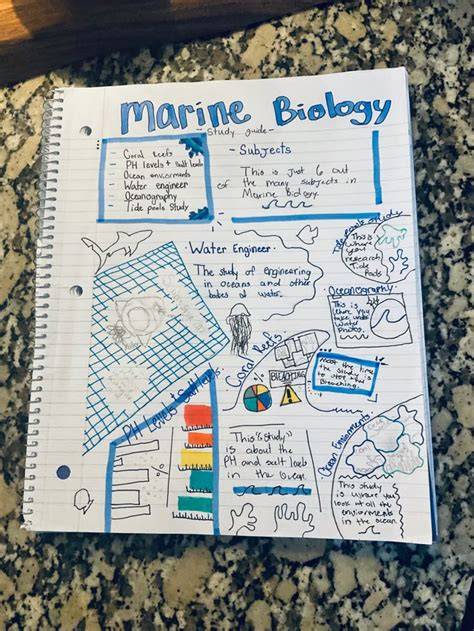 Marine Biology
- Study guide -
- Coral Reefs
- PH levels + salt levels
- Ocean enviorments
- Water engineer
- Oceanography
- Tide pools Study
- Subjects
This is just 6 out
of the many subjects in
Marine Biology.
Water Engineer
The study of engineering
in oceans and other
bodies of water.
Tide Pools Study
This is
Where
you
research
Tide
Pools
Oceanography
This is
where you
take
Water
Photos.
Coral Reefs
BLEACHING
Most the time
the study is
to stop
Bleaching.
PH Levels + Salt levels
This "study"
is about the
PH and salt levels
in the Ocean.
Ocean Enviorments
This study
is where you
look at all the
enviornments
in the ocean.